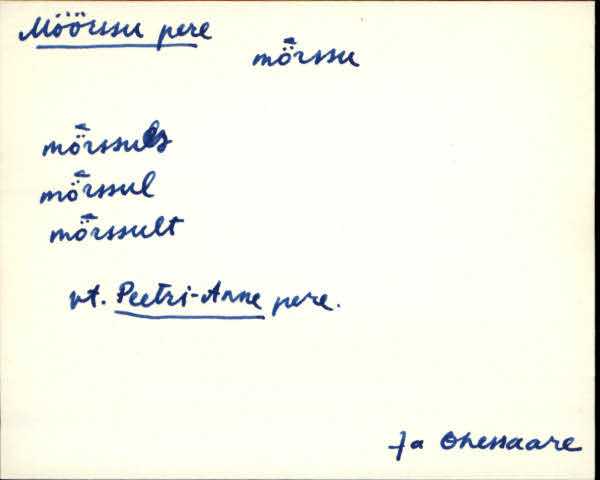 Möörssu pere
mȫrssu
mȫrssules
mȫrssul
mȫrssult
vt. Peetri-Anne pere.
Ja Ohessaare